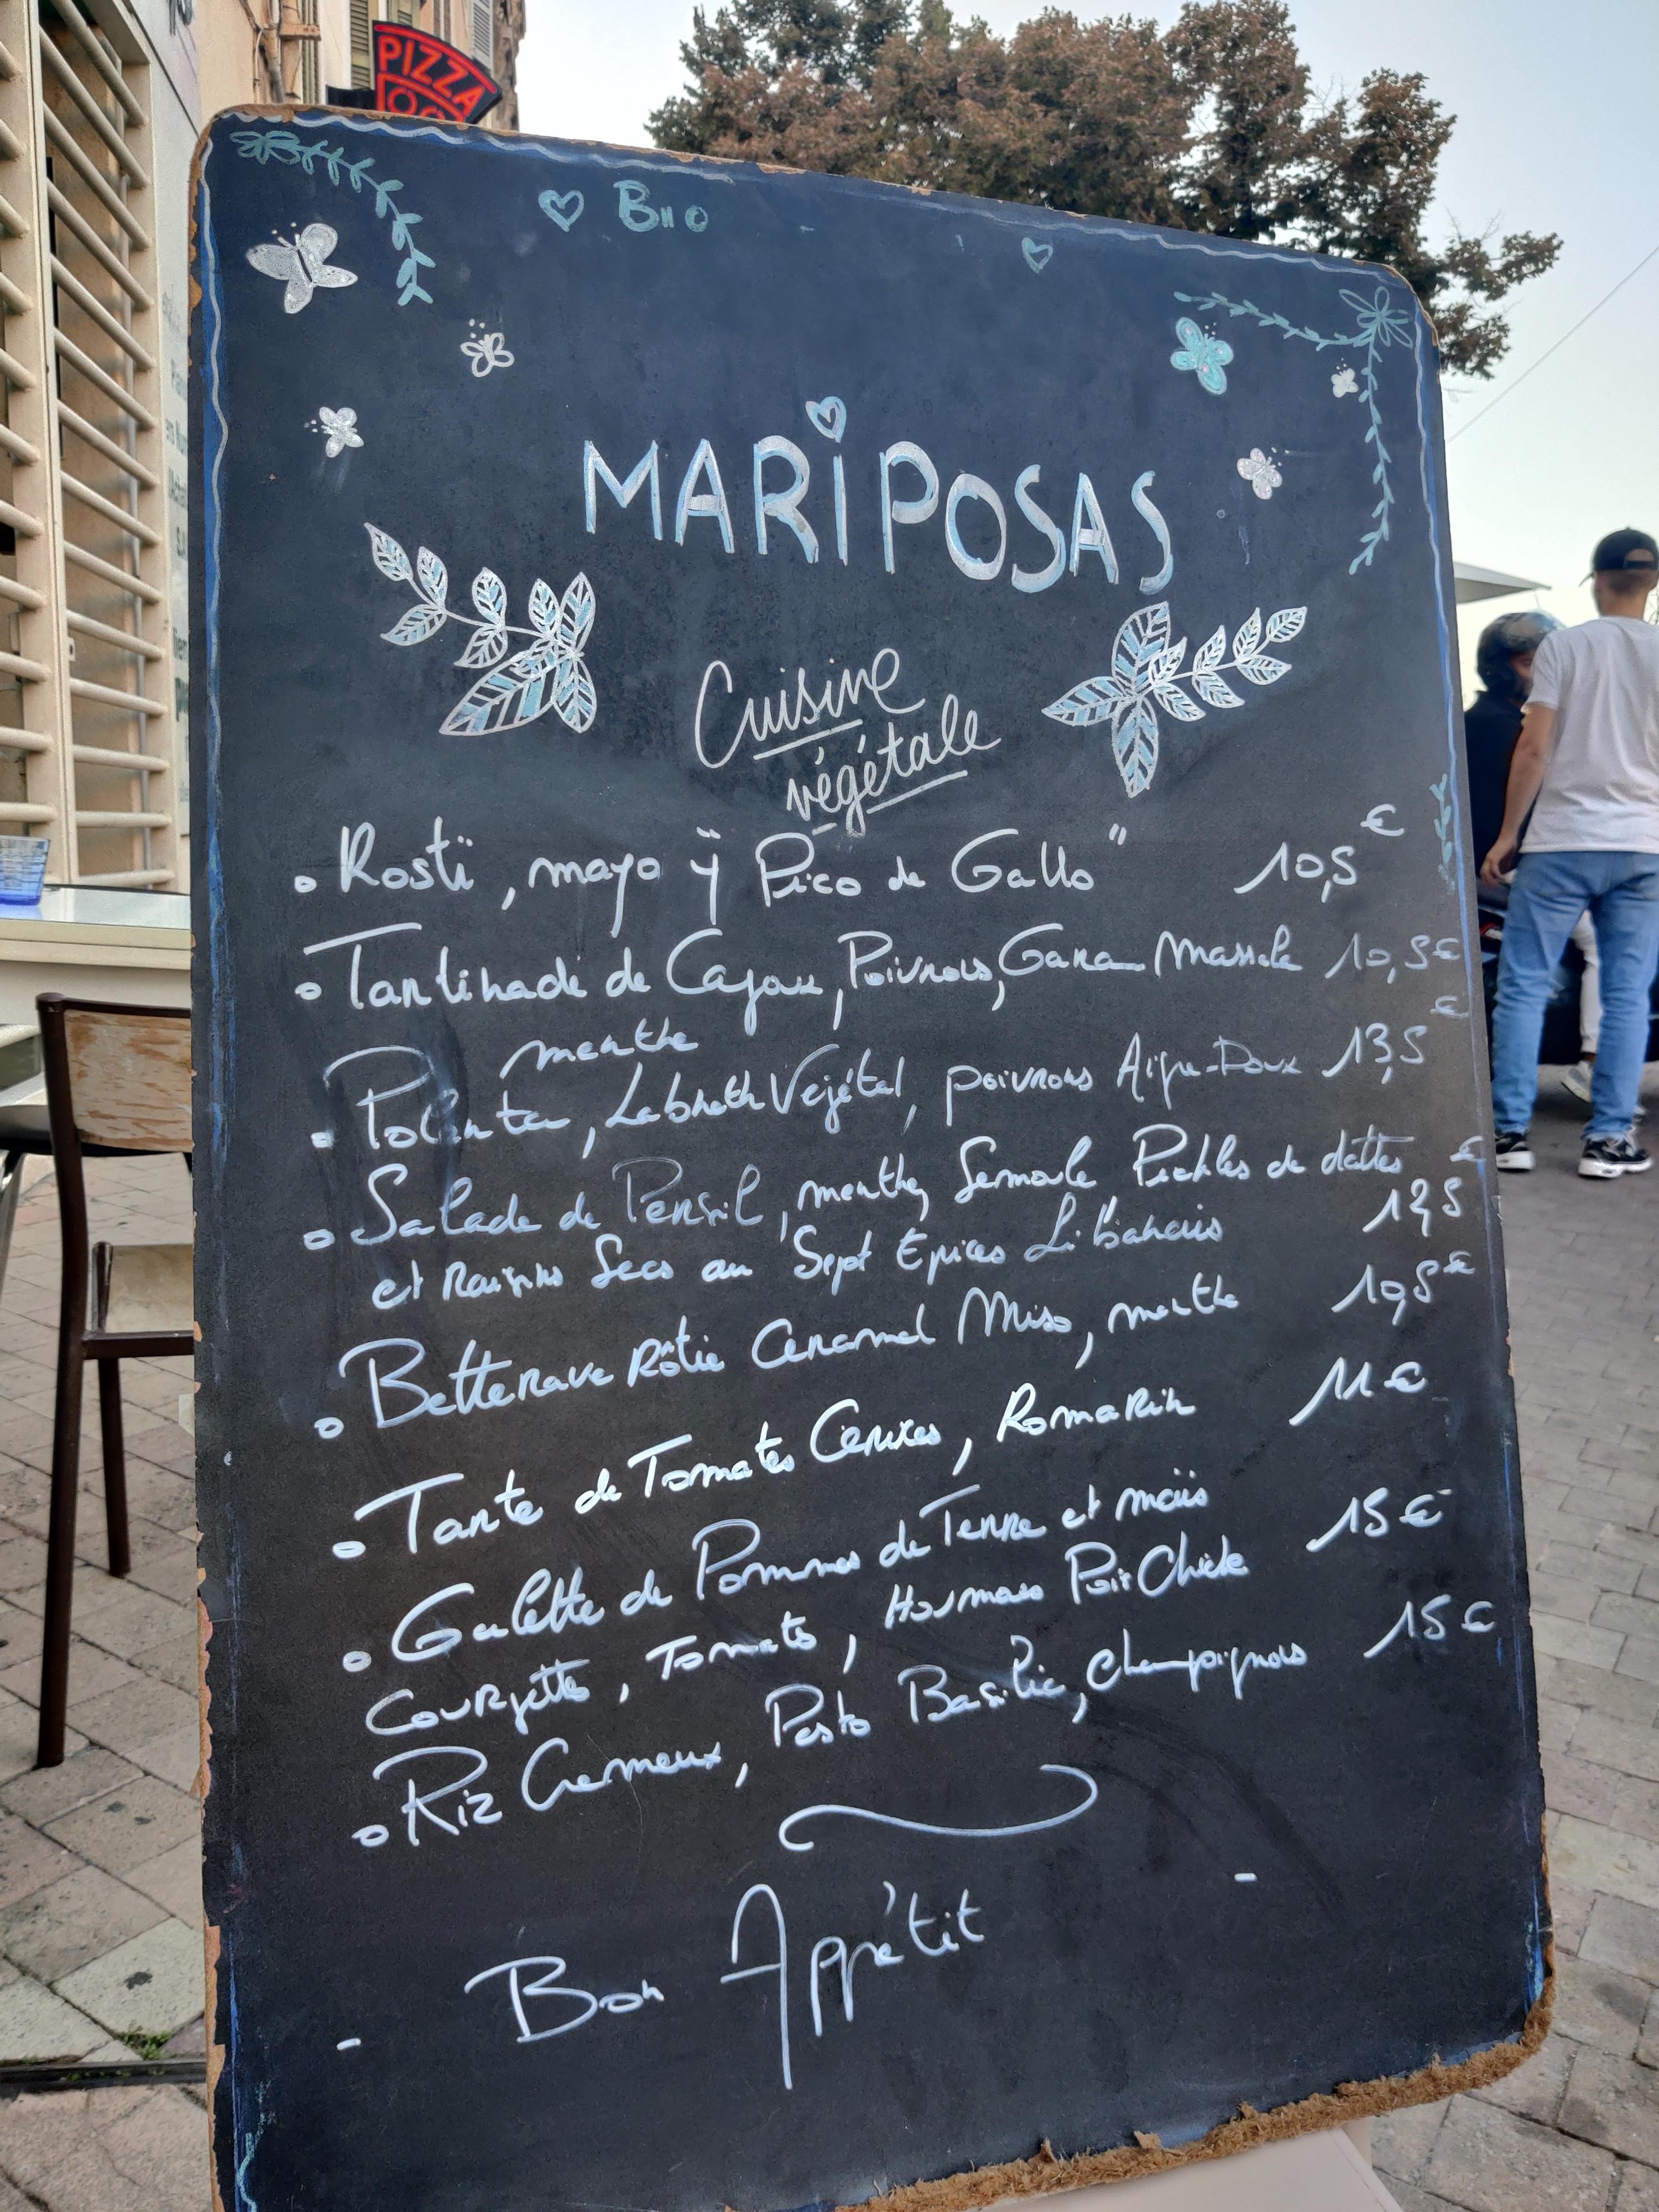 PIZZA
Bio
MARiPOSAS
Cuisine
végétale
Rosti, mayo ÿ "Pico de Gallo" 10,5 €
Tartinade de Cajou, Poivrons, Garam Massala 10,5 €
menthe
Polenta, Labneth Végétal, poivrons Aigre-Doux 13,5 €
Salade de Persil, menthe, Semoule Pickles de dattes
et Raisins Secs au Sept Epices Libanais €
Betterave Rôtie Caramel Miso, menthe 10,5 €
Tarte de Tomates Cerises, Romarin 11 €
Galette de Pommes de Terre et maïs 15 €
Courgette, Tomate, Houmous Pois Chiche
Riz Cremeux, Pesto Basilic, champignons 15 €
Bon Appétit